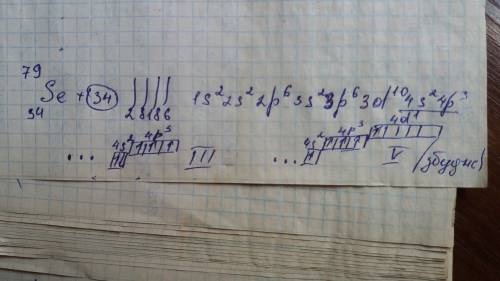 79
Se +34 2 8 18 6 1s² 2s² 2p⁶ 3s² 3p⁶ 3d¹⁰ 4s² 4p³
34
4s² 4p³ 4s¹ 4p³ 4d¹
... III ... V (збудне)